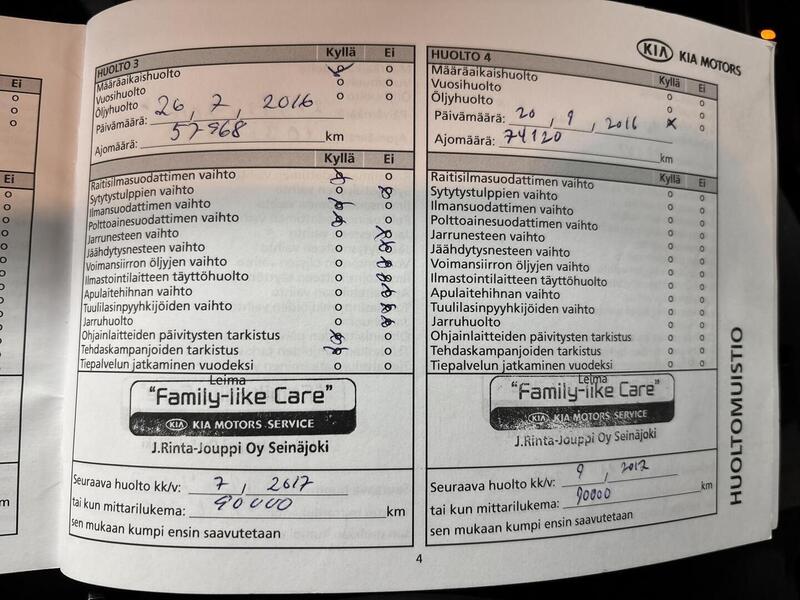 Ei
HUOLTO 3 Kyllä Ei
Määräaikaishuolto
Vuosihuolto
Öljyhuolto
Päivämäärä: 26, 7, 2016
Ajomäärä: 57968 km
Kyllä Ei
Raitisilmasuodattimen vaihto
Sytytystulppien vaihto
Ilmansuodattimen vaihto
Polttoainesuodattimen vaihto
Jarrunesteen vaihto
Jäähdytysnesteen vaihto
Voimansiirron öljyjen vaihto
Ilmastointilaitteen täyttöhuolto
Apulaitehihnan vaihto
Tuulilasinpyyhkijöiden vaihto
Jarruhuolto
Ohjainlaitteiden päivitysten tarkistus
Tehdaskampanjoiden tarkistus
Tiepalvelun jatkaminen vuodeksi
Leima
"Family-like Care"
KIA KIA MOTORS SERVICE
J.Rinta-Jouppi Oy Seinäjoki
Seuraava huolto kk/v: 7, 2017
tai kun mittarilukema: 90000 km
sen mukaan kumpi ensin saavutetaan
KIA KIA MOTORS
HUOLTO 4 Kyllä Ei
Määräaikaishuolto
Vuosihuolto
Öljyhuolto
Päivämäärä: 20, 9, 2016
Ajomäärä: 74120 km
Kyllä Ei
Raitisilmasuodattimen vaihto
Sytytystulppien vaihto
Ilmansuodattimen vaihto
Polttoainesuodattimen vaihto
Jarrunesteen vaihto
Jäähdytysnesteen vaihto
Voimansiirron öljyjen vaihto
Ilmastointilaitteen täyttöhuolto
Apulaitehihnan vaihto
Tuulilasinpyyhkijöiden vaihto
Jarruhuolto
Ohjainlaitteiden päivitysten tarkistus
Tehdaskampanjoiden tarkistus
Tiepalvelun jatkaminen vuodeksi
Leima
"Family-like Care"
KIA KIA MOTORS SERVICE
J.Rinta-Jouppi Oy Seinäjoki
Seuraava huolto kk/v: 9, 2017
tai kun mittarilukema: 90000 km
sen mukaan kumpi ensin saavutetaan
HUOLTOMUISTIO
4